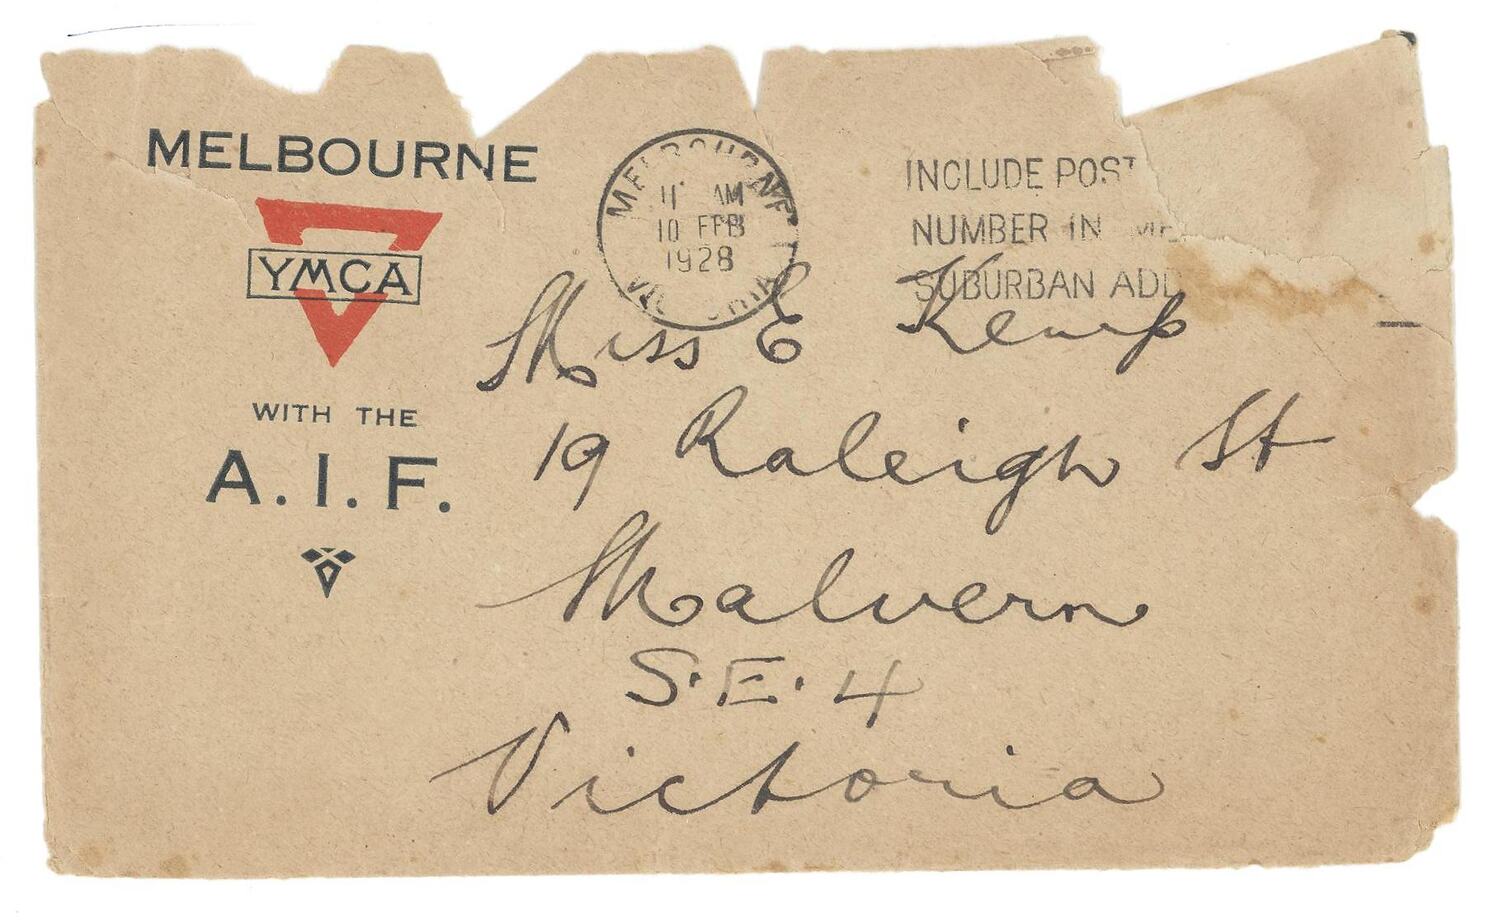 MELBOURNE
YMCA
WITH THE
A.I.F.
MELBOURNE
11 AM
10 FEB
1928
VICTORIA
INCLUDE POST
NUMBER IN ME
SUBURBAN ADD
Miss E Kemp
19 Raleigh St
Malvern
S.E.4
Victoria